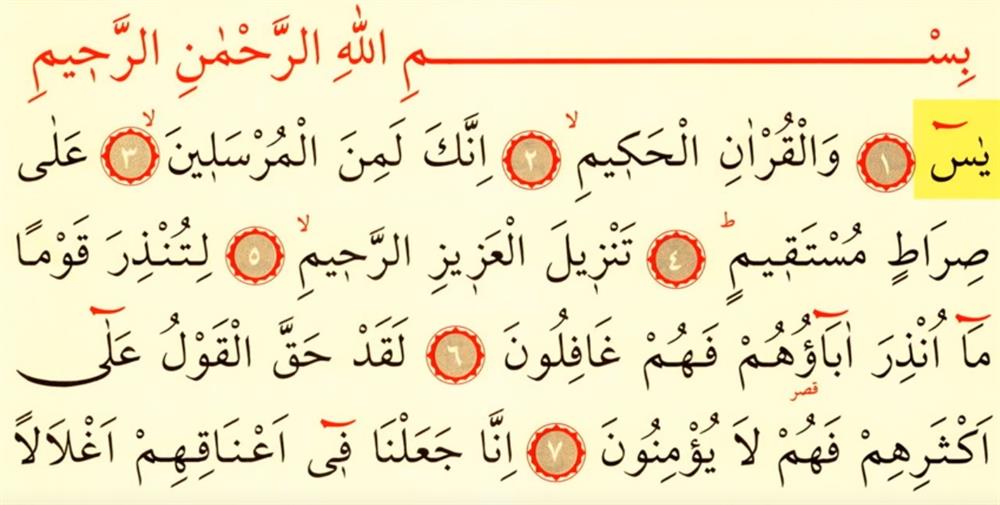 بِسْــــــــمِ اللهِ الرَّحْمٰنِ الرَّحٖيمِ
يٰسٓ ﴿١﴾ وَالْقُرْاٰنِ الْحَكٖيمِ ۙ ﴿٢﴾ اِنَّكَ لَمِنَ الْمُرْسَلٖينَ ۙ ﴿٣﴾ عَلٰى
صِرَاطٍ مُسْتَقٖيمٍ ؕ ﴿٤﴾ تَنْزٖيلَ الْعَزٖيزِ الرَّحٖيمِ ۙ ﴿٥﴾ لِتُنْذِرَ قَوْمًا
مَٓا اُنْذِرَ اٰبَٓاؤُ۬هُمْ فَهُمْ غَافِلُونَ ﴿٦﴾ لَقَدْ حَقَّ الْقَوْلُ عَلٰٓى
قصر
اَكْثَرِهِمْ فَهُمْ لَا يُؤْمِنُونَ ﴿٧﴾ اِنَّا جَعَلْنَا فٖٓى اَعْنَاقِهِمْ اَغْلَالًا